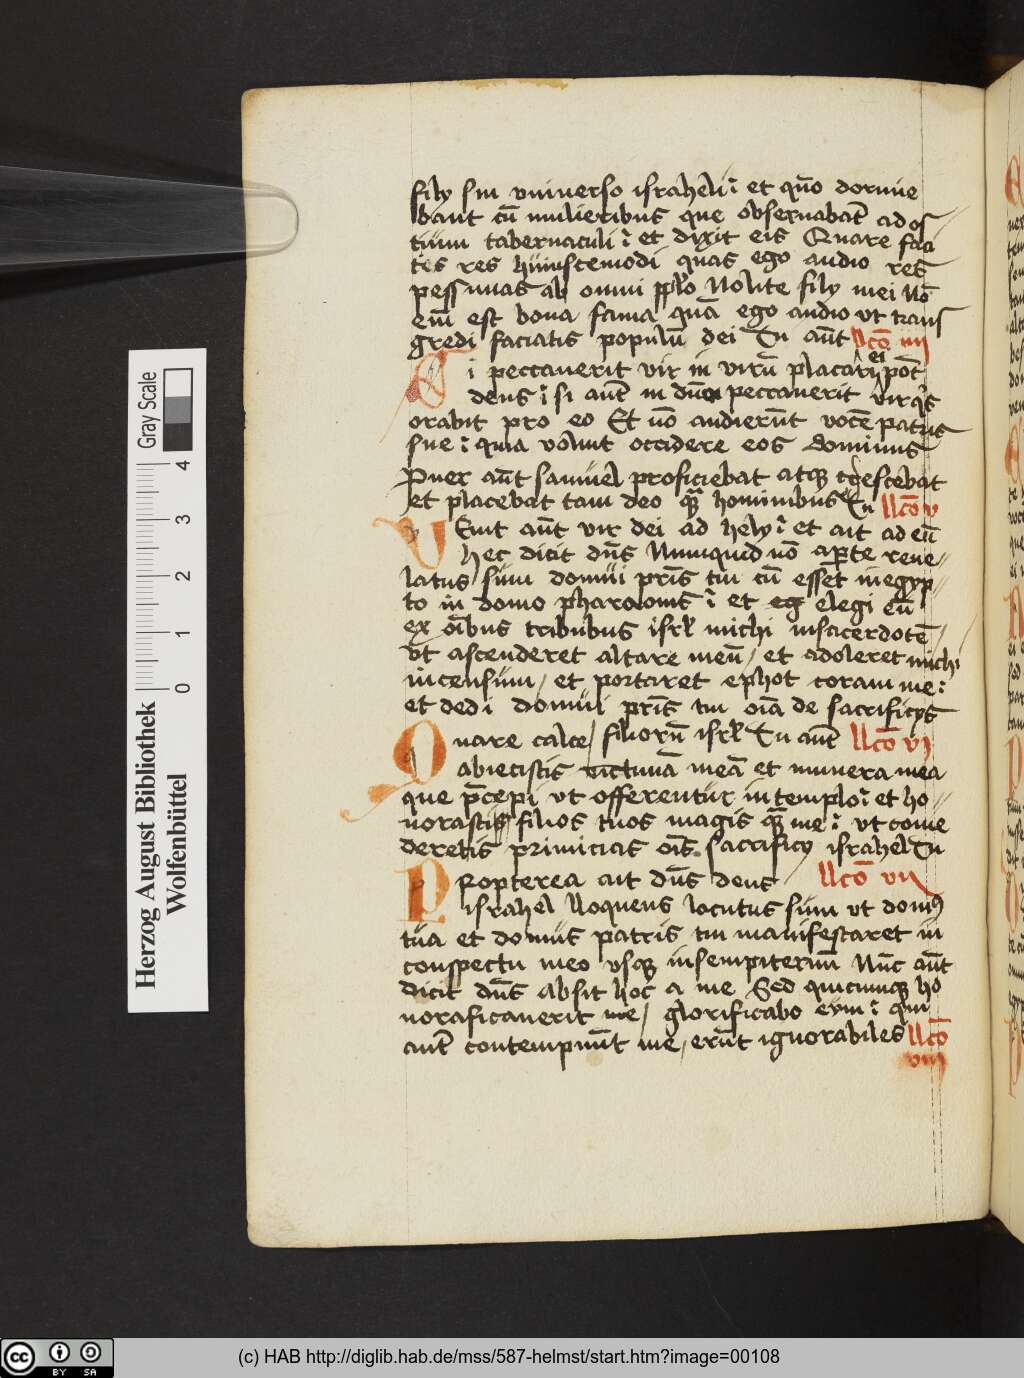 fily sui vniuerso israheli et quō dormie
bant cū mulieribus que obseruabāt ad os
tium tabernaculi et dixit eis Quare faci
tes res huiuscemodi quas ego audio res
pessimas ab omni pplo Nolite fily mei Nō
em̄ est bona fama quā ego audio vt trans
gredi faciatis populū dei Tu aūt llcō iiii
Si peccauerit vir in virū placari ei pōt
deus si aūt in dūm peccauerit vir qs
orabit pro eo Et nō audierūt vocē patris
sue quia voluit occidere eos dominus
Puer aūt samuel proficiebat atqꝫ crescebat
et placebat tam deo qꝫ hominibus Tu llcō v
Venit aūt vir dei ad hely et ait ad eū
hec dicit dūs Numquid nō aperte reue
latus sum domui pris tui cū esset in egyp
to in domo pharaonis et elegi eū
ex oībus tribubus isrl michi in sacerdotē
vt ascenderet altare meū et adoleret michi
incensum et portaret ephot coram me
et dedi domui pris tui oīa de sacrificys
Quare calce filiorū isrl Tu aūt llcō vi
abiecistis victimā meā et munera mea
que p̄cepi vt offerentur in templo et ho
norastis filios tuos magis qꝫ me vt come
deretis primicias ois sacrificy israhel Tu
Propterea ait dūs deus llcō vii
israhel lloquens locutus sum vt domus
tua et domus patris tui manifestaret in
conspectu meo vsqꝫ in sempiternū Nūc aūt
dicit dūs absit hoc a me Sed quicumqꝫ ho
norificauerit me glorificabo eum qui
autē contempnūt me erūt ignorabiles llcō
viii
Gray Scale
0 1 2 3 4
Herzog August Bibliothek
Wolfenbüttel
cc BY SA
(c) HAB http://diglib.hab.de/mss/587-helmst/start.htm?image=00108